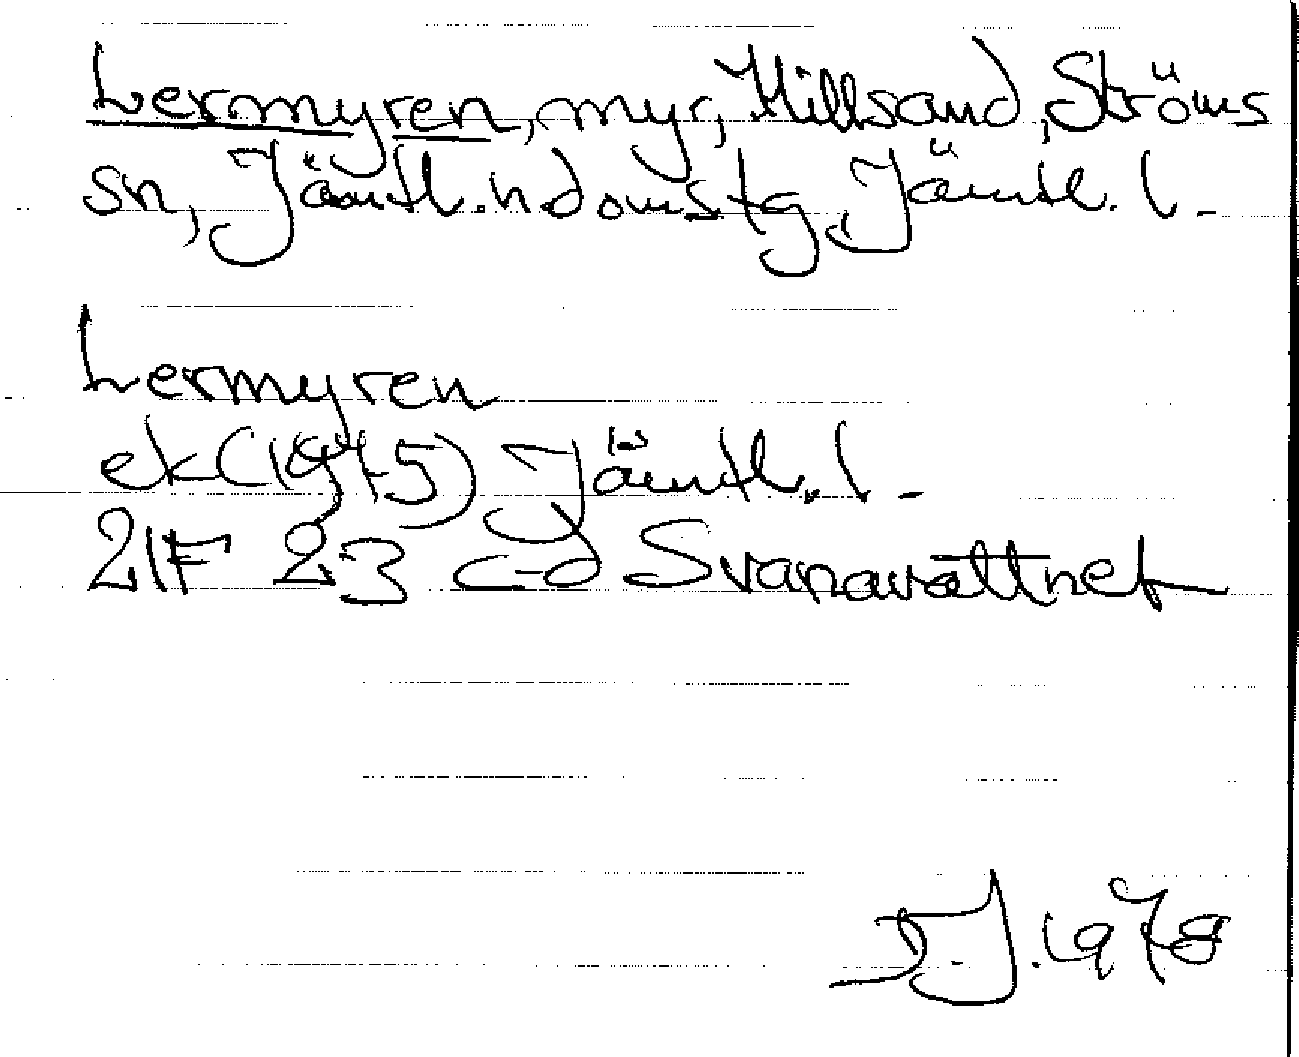 Lermyren, myr, Hillsand, Ströms
sn, Jämtl. n. domstg, Jämtl. l.
Lermyren
ek (1945) Jämtl. l.
21F 23 c-d Svanavattnet